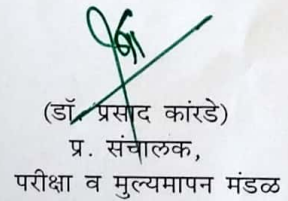 (डॉ. प्रसाद कांरडे)
प्र. संचालक,
परीक्षा व मुल्यमापन मंडळ